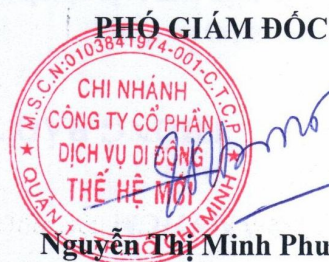 PHÓ GIÁM ĐỐC
M.S.C.N:0103841974-001-C.T.C.P
CHI NHÁNH
CÔNG TY CỔ PHẦN
DỊCH VỤ DI ĐỘNG
THẾ HỆ MỚI
QUẬN 1
HỒ CHÍ MINH
Nguyễn Thị Minh Phu